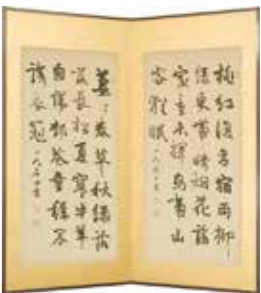 桃紅復含宿雨柳
綠更帶朝烟花落
家童未掃鳥啼山
客猶眠
萋〻芳草秋綠落
〻長松夏寒牛羊
自歸村巷童稚不
識衣冠